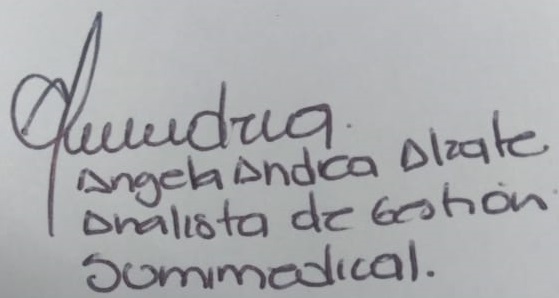 Angela Andrea Alzate
Analista de Gestión
Sommedical.